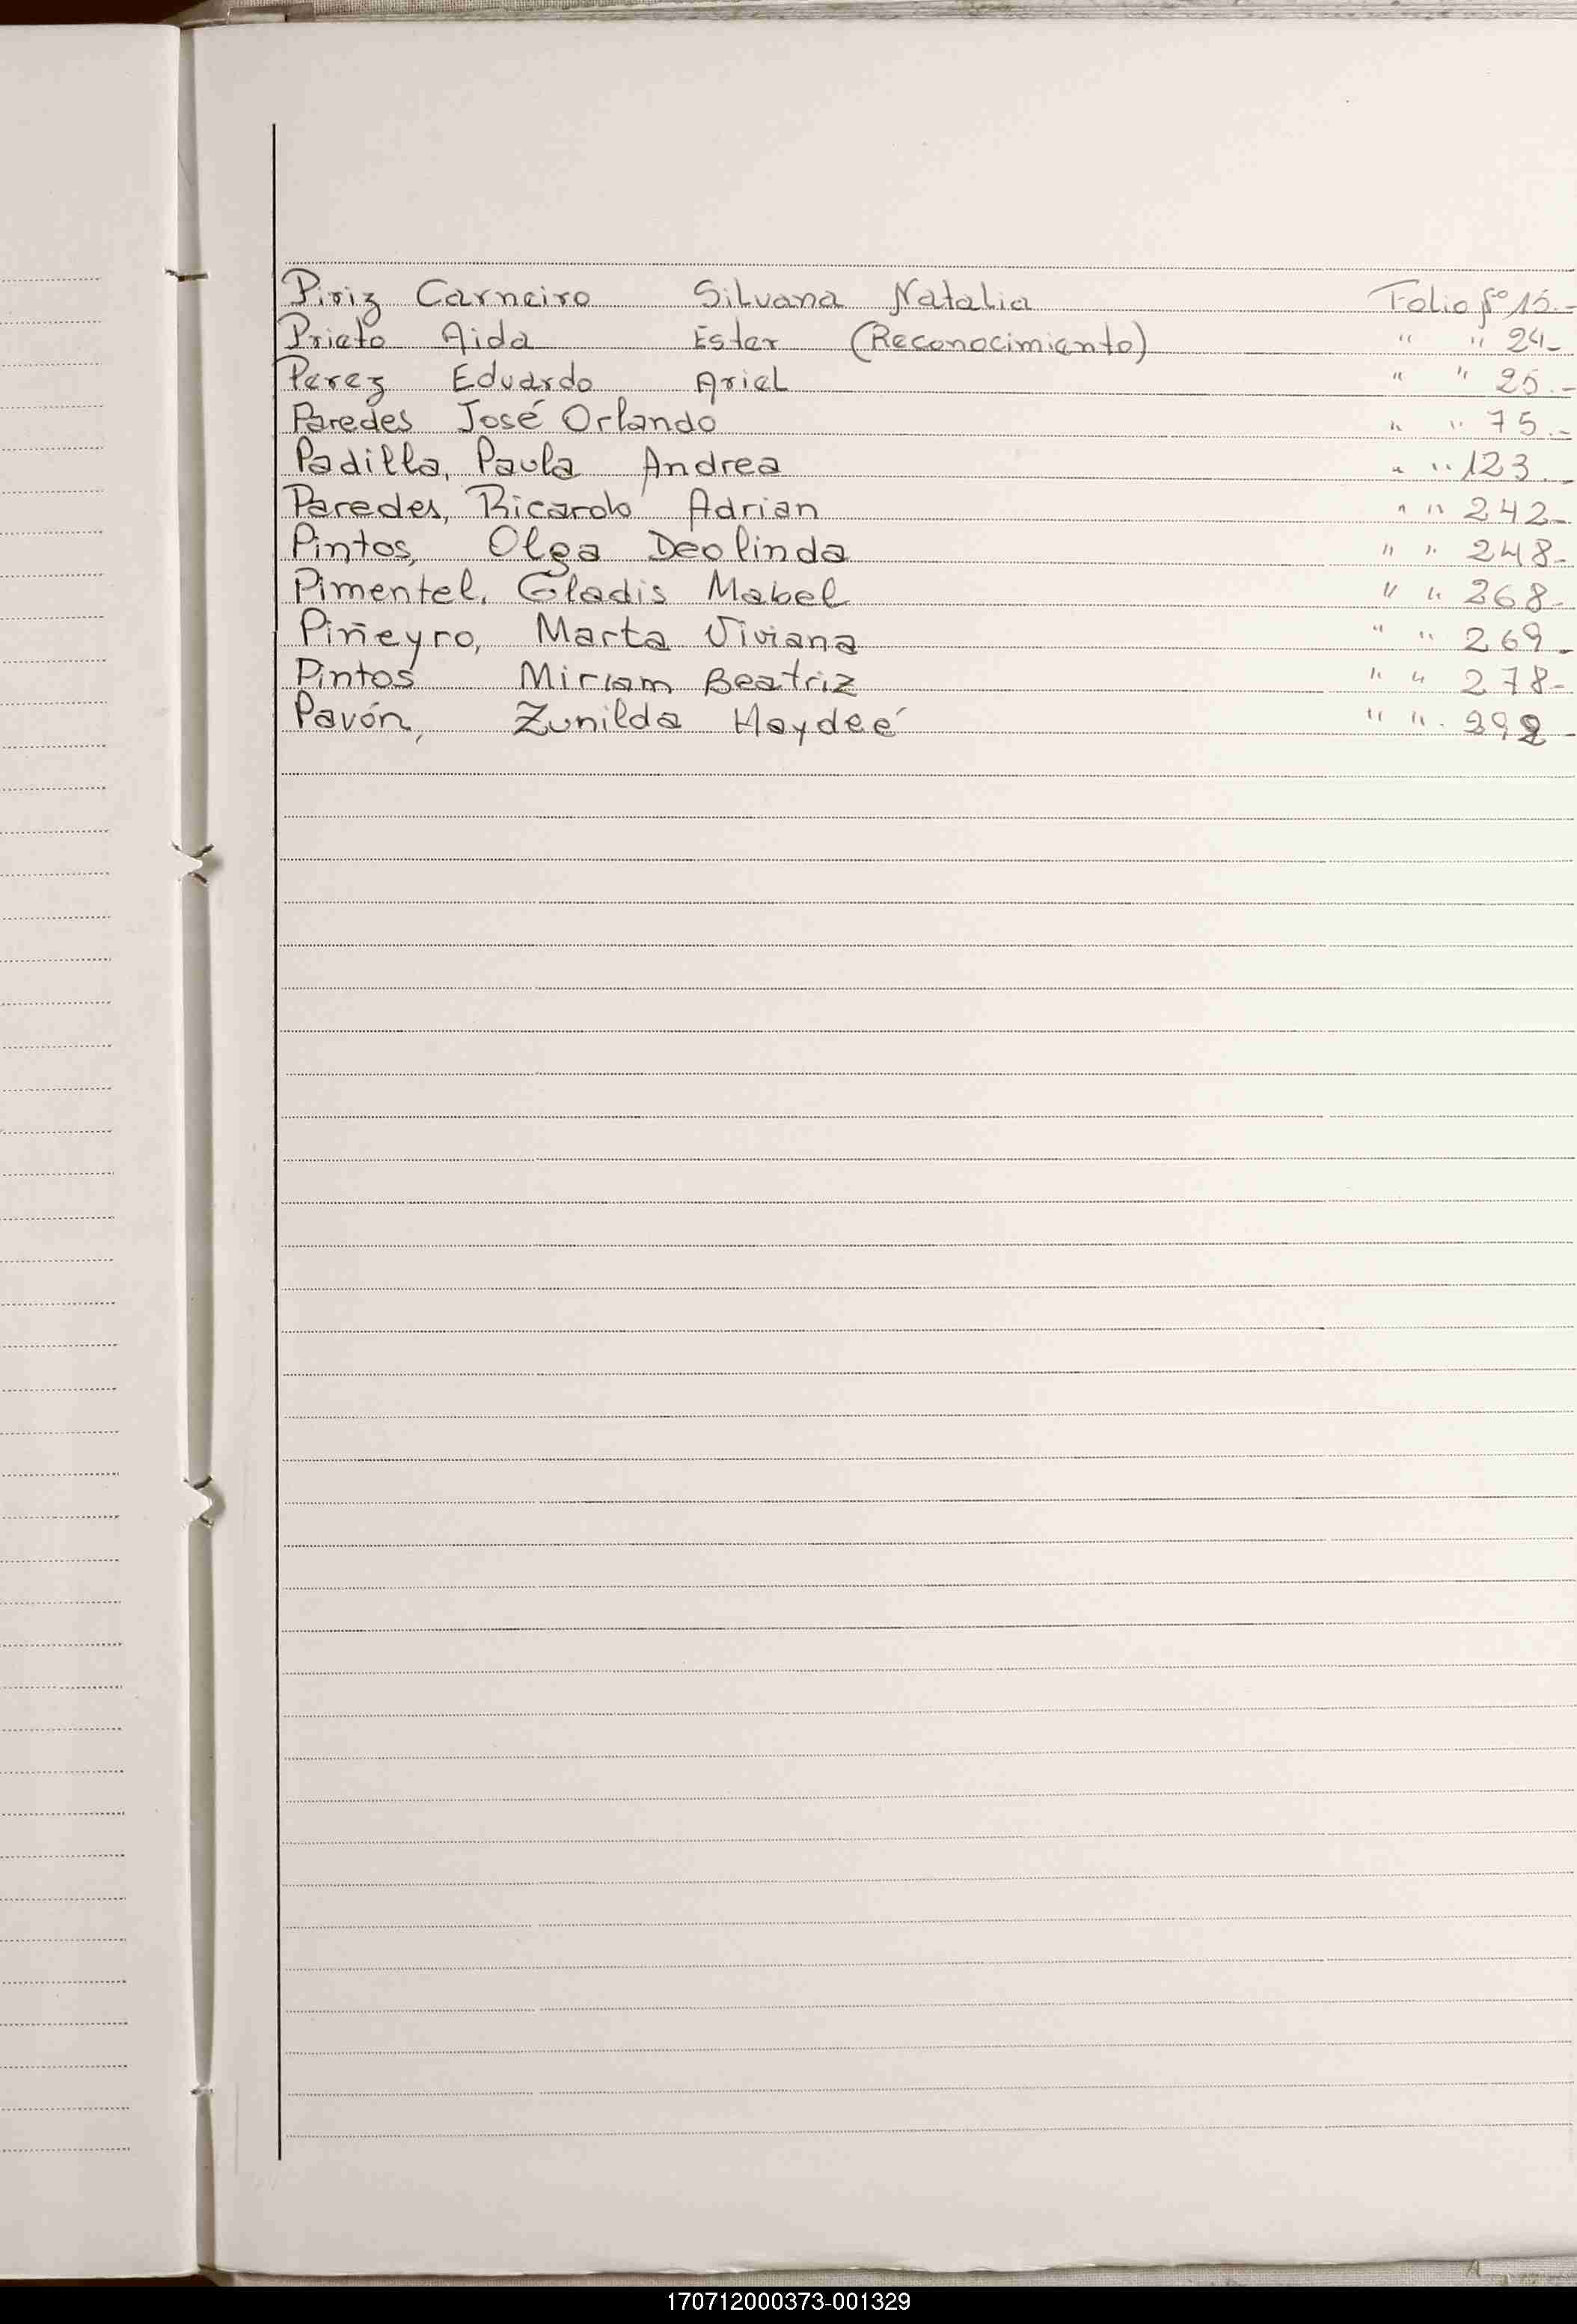 Piriz Carneiro Silvana Natalia Folio Nº 15.-
Prieto Aida Ester (Reconocimiento) " " 24-
Perez Eduardo Ariel " " 25.-
Paredes José Orlando " " 75.-
Padilla, Paula Andrea " " 123.-
Paredes, Ricardo Adrian " " 242-
Pintos, Olga Deolinda " " 248-
Pimentel, Gladis Mabel " " 268-
Piñeyro, Marta Viviana " " 269-
Pintos Miriam Beatriz " " 278-
Pavón, Zunilda Haydeé " " 292-
170712000373-001329